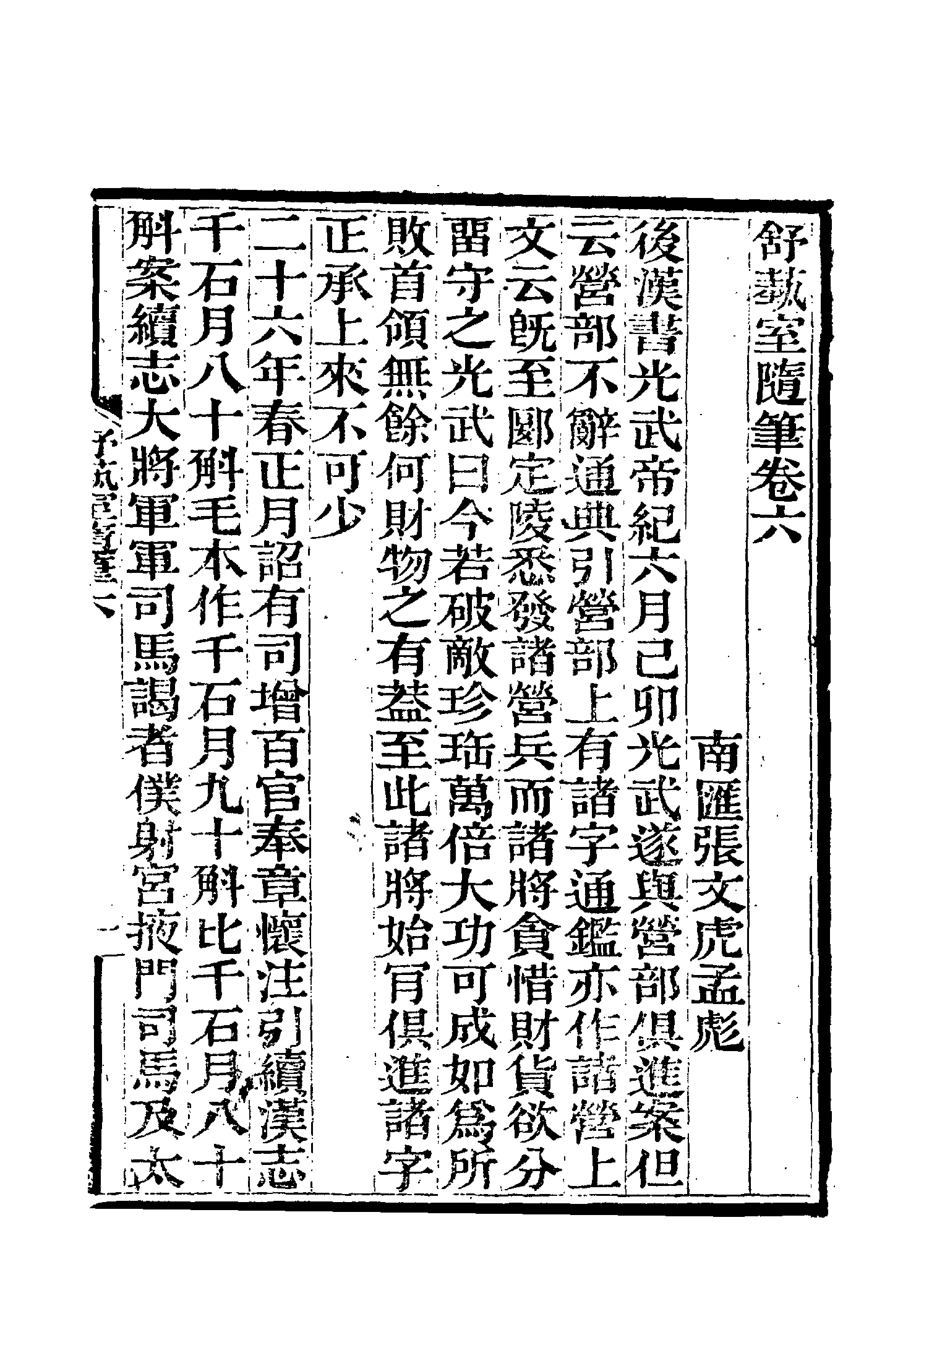 舒蓺室隨筆卷六
南匯張文虎孟彪
後漢書光武帝紀六月己卯光武遂與營部俱進案但
云營部不辭通典引營部上有諸字通鑑亦作諸營上
文云旣至郾定陵悉發諸營兵而諸將貪惜財貨欲分
畱守之光武曰今若破敵珍珤萬倍大功可成如爲所
敗首領無餘何財物之有葢至此諸將始肎俱進諸字
正承上來不可少
二十六年春正月詔有司增百官奉章懷注引續漢志
千石月八十斛毛本作千石月九十斛比千石月八十
斛案續志大將軍軍司馬謁者僕射宮掖門司馬及太
舒蓺室隨筆六
一